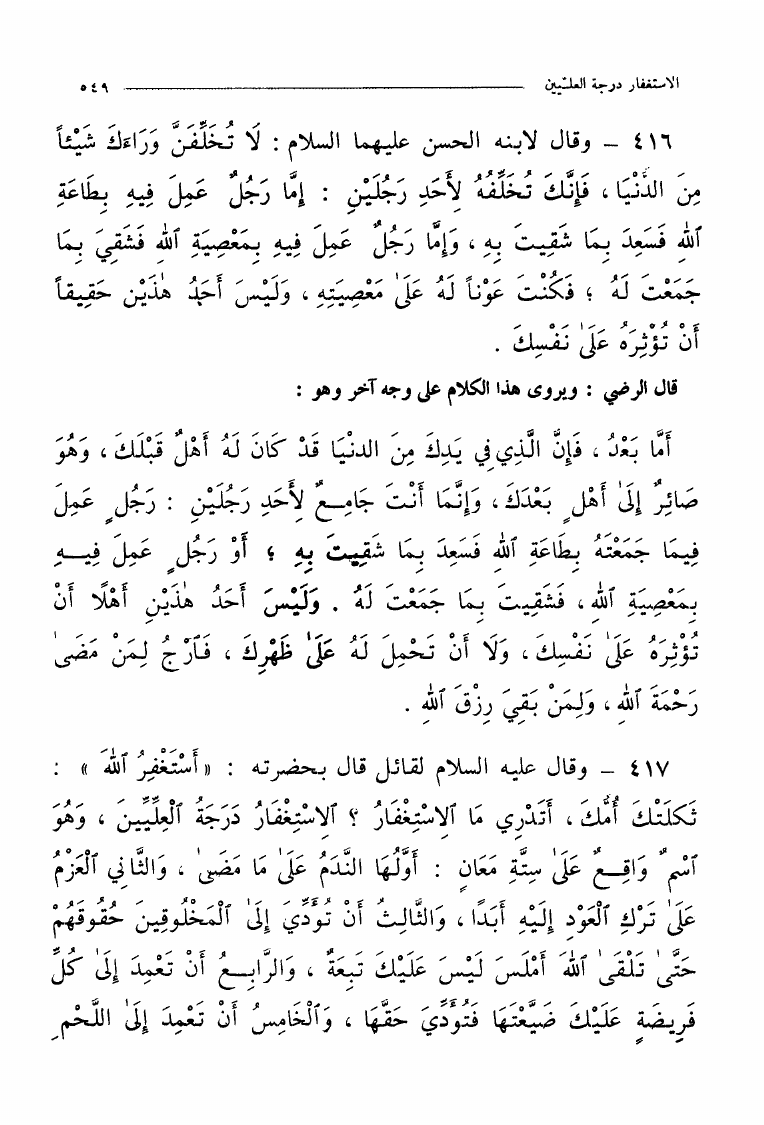 الاستغفار درجة العلـّيين ٥٤٩
٤١٦ – وقال لابنه الحسن عليهما السلام : لَا تُخَلِّفَنَّ وَرَاءَكَ شَيْئاً
مِنَ الدُّنْيَا ، فَإِنَّكَ تُخَلِّفُهُ لِأَحَدِ رَجُلَيْنِ : إِمَّا رَجُلٌ عَمِلَ فِيهِ بِطَاعَةِ
ٱللهِ فَسَعِدَ بِمَا شَقِيتَ بِهِ ، وَإِمَّا رَجُلٌ عَمِلَ فِيهِ بِمَعْصِيَةِ ٱللهِ فَشَقِيَ بِمَا
جَمَعْتَ لَهُ ؛ فَكُنْتَ عَوْناً لَهُ عَلَىٰ مَعْصِيَتِهِ ، وَلَيْسَ أَحَدُ هٰذَيْنِ حَقِيقاً
أَنْ تُؤْثِرَهُ عَلَىٰ نَفْسِكَ .
قال الرضي : ويروى هذا الكلام على وجه آخر وهو :
أَمَّا بَعْدُ ، فَإِنَّ الَّذِي فِي يَدِكَ مِنَ الدنْيَا قَدْ كَانَ لَهُ أَهْلٌ قَبْلَكَ ، وَهُوَ
صَائِرٌ إِلَىٰ أَهْلٍ بَعْدَكَ ، وَإِنَّمَا أَنْتَ جَامِـعٌ لِأَحَدِ رَجُلَيْنِ : رَجُلٍ عَمِلَ
فِيمَا جَمَعْتَهُ بِطَاعَةِ ٱللهِ فَسَعِدَ بِمَا شَقِيتَ بِهِ ؛ أَوْ رَجُلٍ عَمِلَ فِيـــهِ
بِمَعْصِيَةِ ٱللهِ ، فَشَقِيتَ بِمَا جَمَعْتَ لَهُ . وَلَيْسَ أَحَدُ هٰذَيْنِ أَهْلًا أَنْ
تُؤْثِرَهُ عَلَىٰ نَفْسِكَ ، وَلَا أَنْ تَحْمِلَ لَهُ عَلَىٰ ظَهْرِكَ ، فَٱرْجُ لِمَنْ مَضَىٰ
رَحْمَةَ ٱللهِ ، وَلِمَنْ بَقِيَ رِزْقَ ٱللهِ .
٤١٧ – وقال عليه السلام لقائل قال بحضرته : «أَسْتَغْفِرُ ٱللهَ » :
ثَكِلَتْكَ أُمُّكَ ، أَتَدْرِي مَا ٱلِاسْتِغْفَارُ ؟ ٱلِاسْتِغْفَارُ دَرَجَةُ ٱلْعِلِّيِّينَ ، وَهُوَ
ٱسْمٌ وَاقِـعٌ عَلَىٰ سِتَّةِ مَعَانٍ : أَوَّلُهَا النَّدَمُ عَلَىٰ مَا مَضَىٰ ، وَالثَّانِي ٱلْعَزْمُ
عَلَىٰ تَرْكِ ٱلْعَوْدِ إِلَيْهِ أَبَدًا ، وَالثَّالِثُ أَنْ تُؤَدِّيَ إِلَىٰ ٱلْمَخْلُوقِينَ حُقُوقَهُمْ
حَتَّىٰ تَلْقَىٰ ٱللهَ أَمْلَسَ لَيْسَ عَلَيْكَ تَبِعَةٌ ، وَالرَّابِـعُ أَنْ تَعْمِدَ إِلَىٰ كُلِّ
فَرِيضَةٍ عَلَيْكَ ضَيَّعْتَهَا فَتُؤَدِّيَ حَقَّهَا ، وَٱلْخَامِسُ أَنْ تَعْمِدَ إِلَىٰ اللَّحْمِ